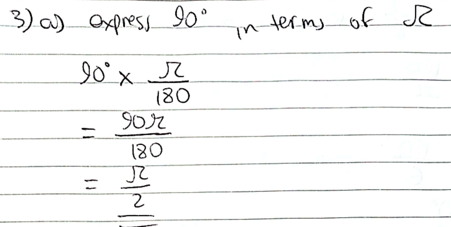 3) a) express 90° in terms of π
90° × π/180
= 90π/180
= π/2